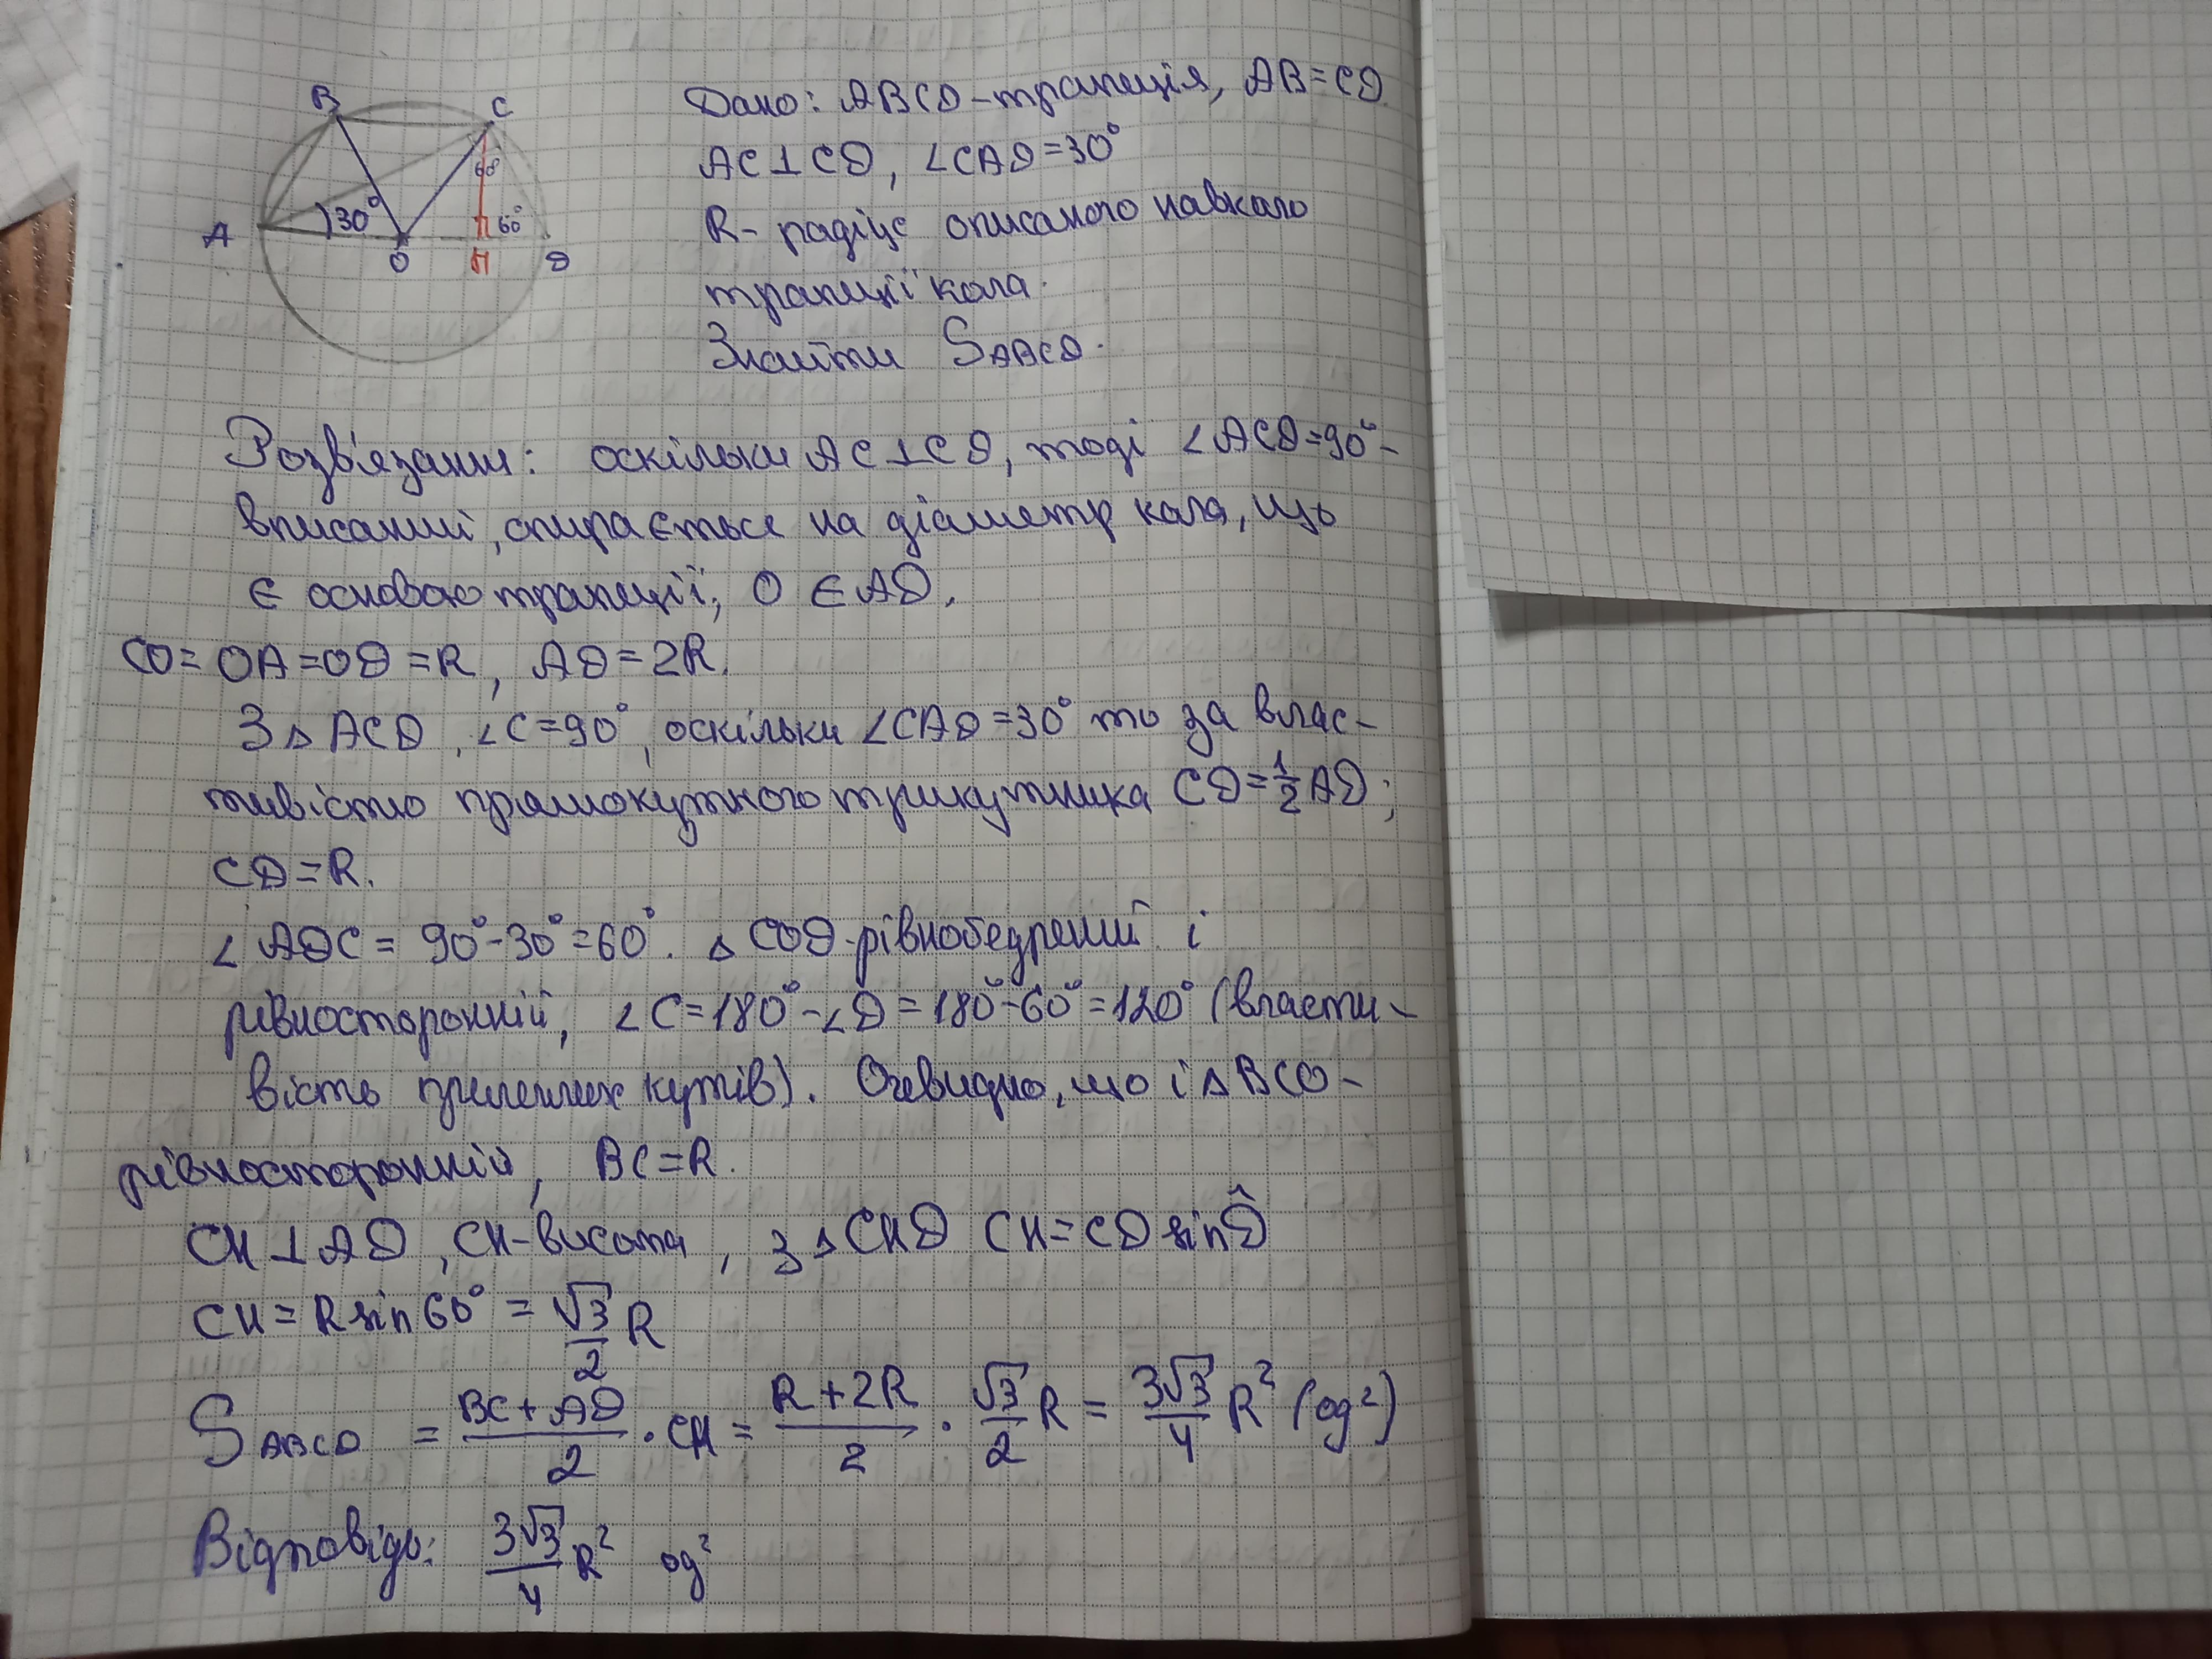 B
C
60°
A
30°
60°
O
H
D
Дано: ABCD - трапеція, AB = CD
AC ⊥ CD, ∠CAD = 30°
R - радіус описаного навколо
трапеції кола.
Знайти S ABCD.
Розв'язання: оскільки AC ⊥ CD, тоді ∠ACD = 90° -
вписаний, спирається на діаметр кола, що
є основою трапеції, O ∈ AD.
CO = OA = OD = R, AD = 2R.
З △ ACD, ∠C = 90°, оскільки ∠CAD = 30° то за влас-
тивістю прямокутного трикутника CD = 1/2 AD;
CD = R.
∠ ADC = 90° - 30° = 60°. △ COD - рівнобедрений і
рівносторонній, ∠C = 180° - ∠D = 180° - 60° = 120° (власти-
вість прилеглих кутів). Очевидно, що і △ BCO -
рівносторонній, BC = R.
CH ⊥ AD, CH - висота, з △ CHD CH = CD sin D̂
CH = R sin 60° = √3/2 R
S ABCD = (BC + AD)/2 · CH = (R + 2R)/2 · √3/2 R = 3√3/4 R² (од²)
Відповідь: 3√3/4 R² од²